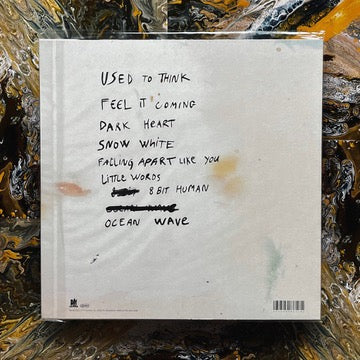 USED TO THINK
FEEL IT COMING
DARK HEART
SNOW WHITE
FALLING APART LIKE YOU
LITTLE WORDS
8 BIT HUMAN
OCEAN WAVE